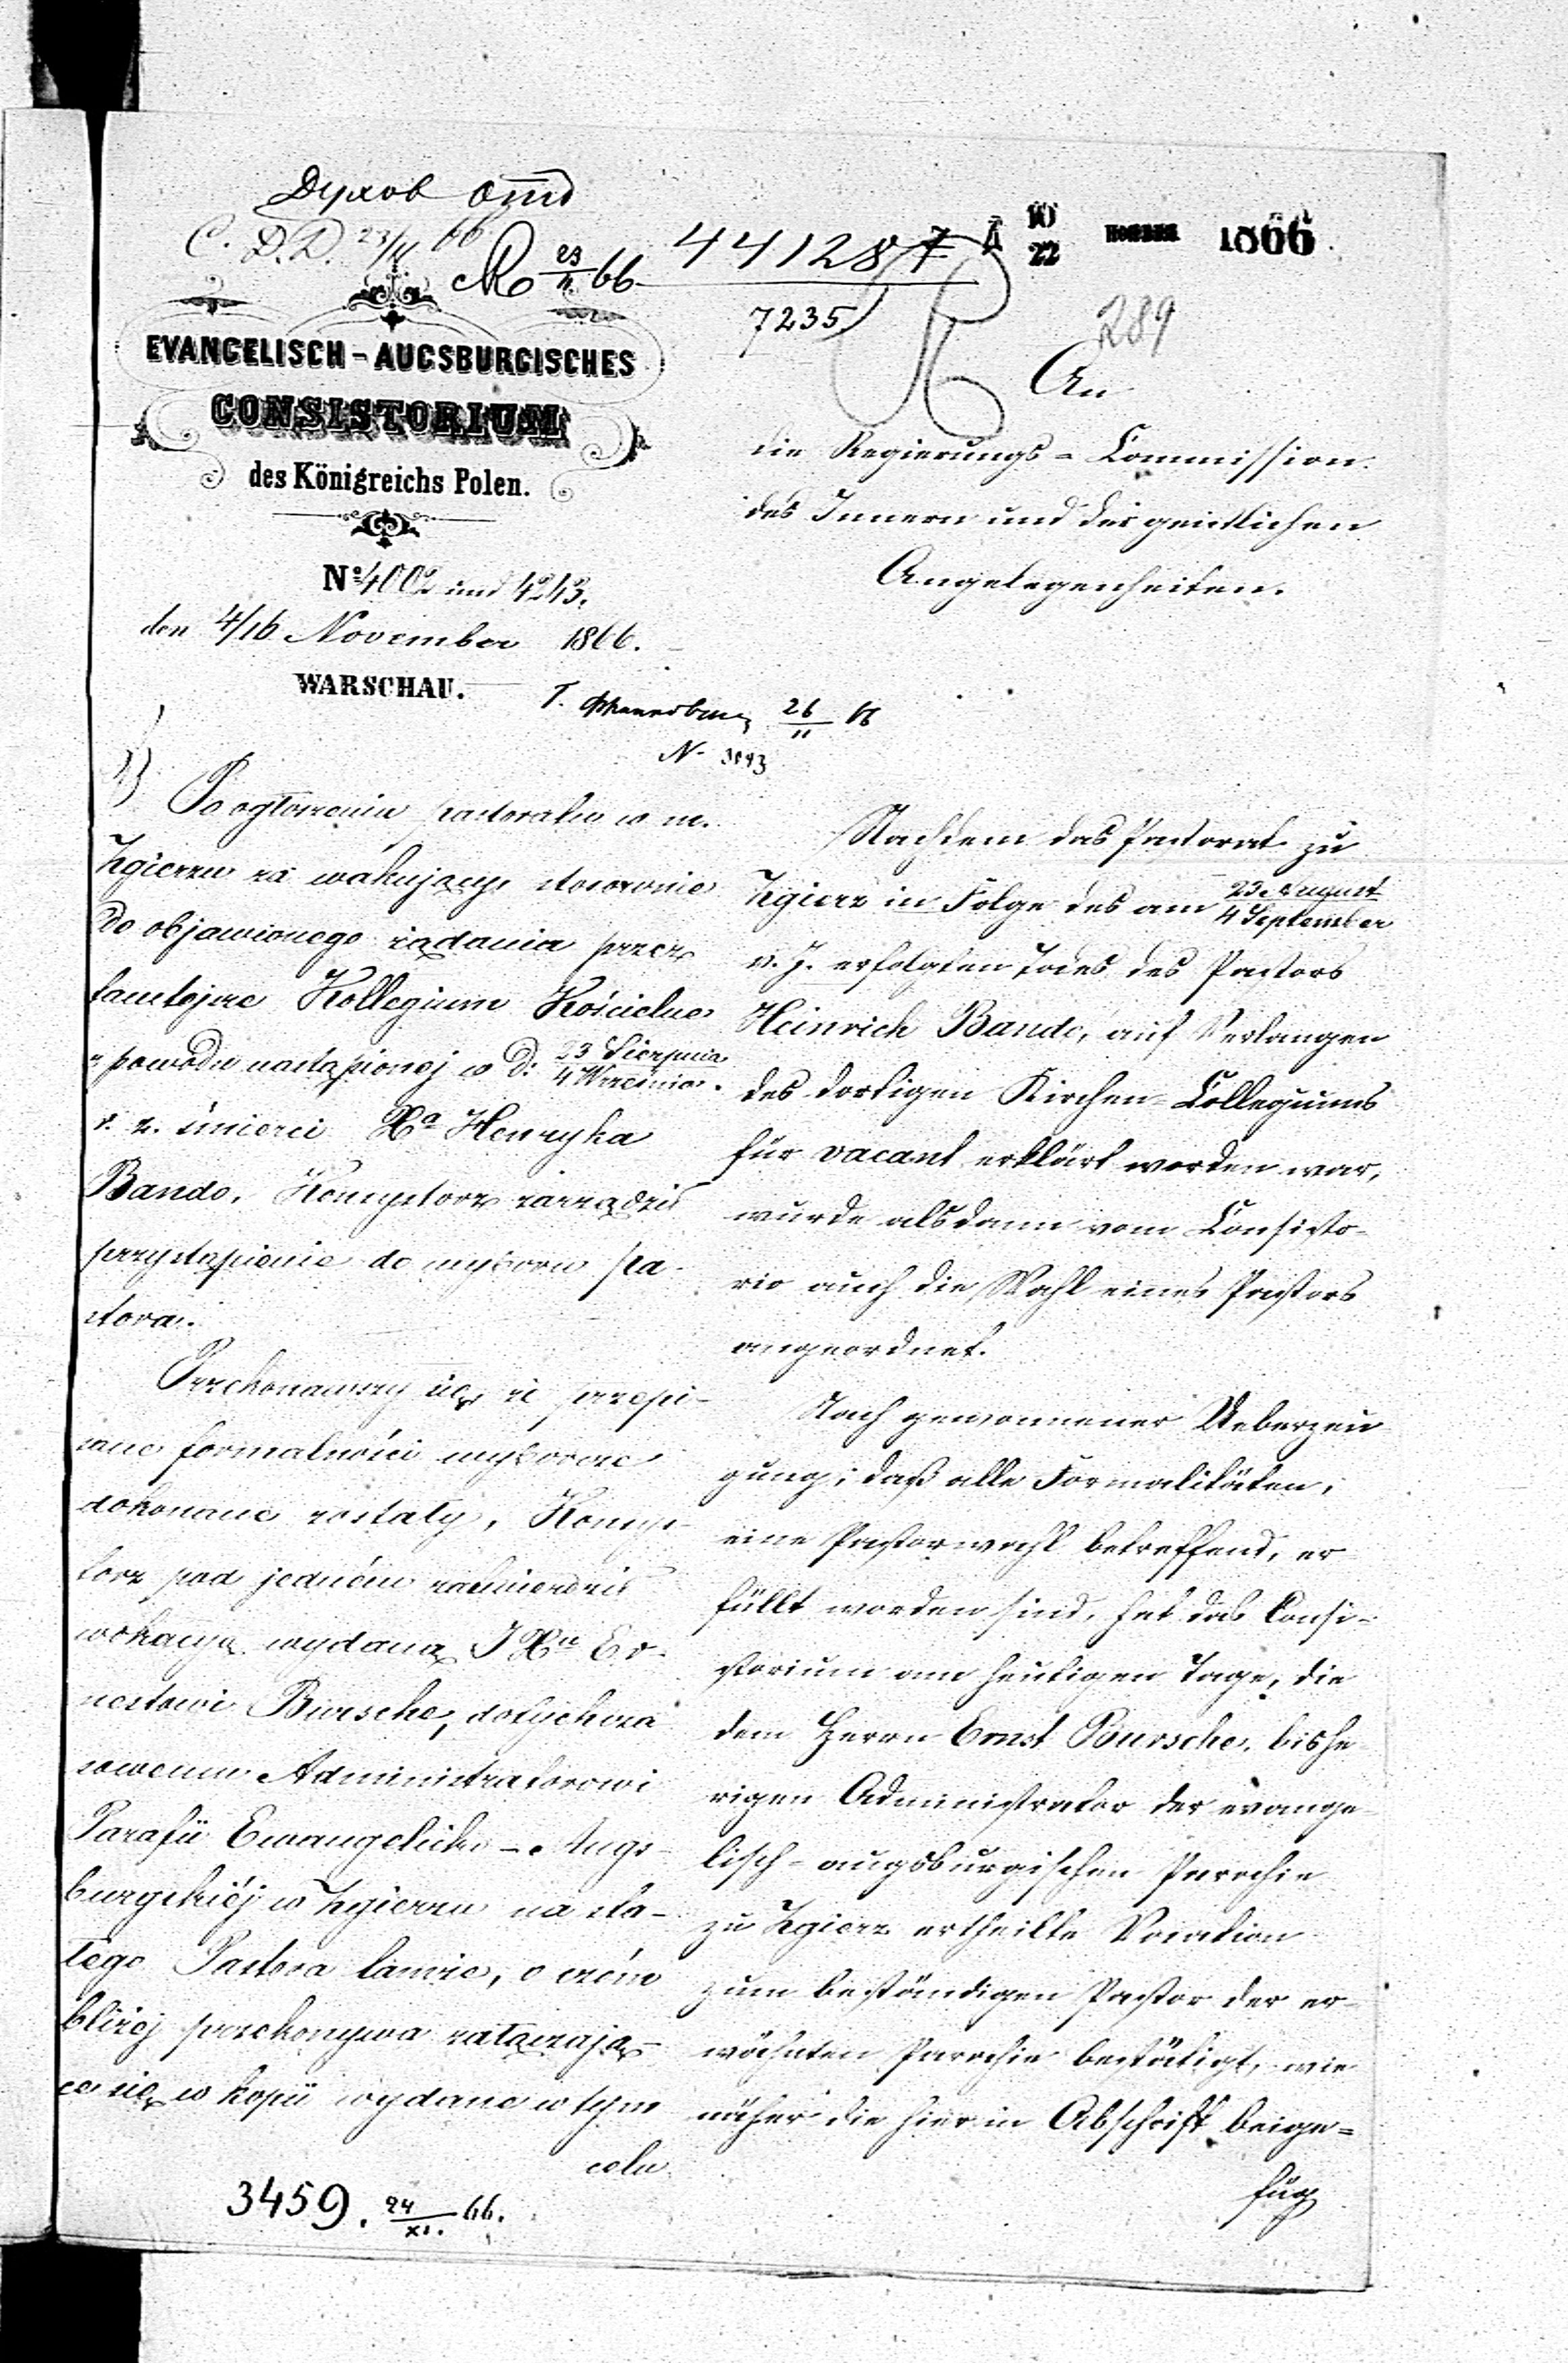 Духов отд
C. D.D. 23/11 66
23/11 66
441287
10/22 1866
7235
289
EVANGELISCH-AUGSBURGISCHES
CONSISTORIUM
des Königreichs Polen.
No 4002 und 4243.
den 4/16 November 1866.
WARSCHAU.
26/11
N 3043
An
die Regierungs-Commission
des Innern und der geistlichen
Angelegenheiten.
1) Po ogłoszeniu pastoratu w m.
Zgierzu za wakujący, stosownie
do objawionego żądania przez
tamtejsze Kollegium Kościelne
z powodu nastąpionej w d: 23 Sierpnia/4 Września
r. z. śmierci Xa Henryka
Bando, Konsystorz zarządził
przystąpienie do wyboru pa-
stora.
Przekonawszy się, że przepi-
sane formalności wyborcze
dokonane zostały, Konsys-
torz pod jedném zatwierdził
wokacyą wydaną JXu Er-
nestowi Bursche, dotychcza
sowemu Administratorowi
Parafii Ewangelicko-Augs-
burgskiéj w Zgierzu na sta-
łego Pastora tamże, o czém
bliżej przekonywa załączają-
ce się w kopii wydane w tym
celu
Nachdem das Pastorat zu
Zgierz in Folge des am 23. August/4 September
v. J. erfolgten Todes des Pastors
Heinrich Bando, auf Verlangen
des dortigen Kirchen-Collegiums
für vacant erklärt worden war,
wurde alsdann vom Consisto-
rio auch die Wahl eines Pastors
angeordnet.
Nach gewonnener Ueberzeu
gung, daß alle Formalitäten,
eine Pastorwahl betreffend, er
füllt worden sind, hat das Consi-
storium am heutigen Tage, die
dem Herrn Ernst Bursche, bishe
rigen Administrator der evange
lisch-augsburgischen Parochie
zu Zgierz ertheilte Vocation
zum beständigen Pastor der er-
wähnten Parochie bestätigt, wie
näher die hier in Abschrift beige=
füg
3459. 24/XI. 66.